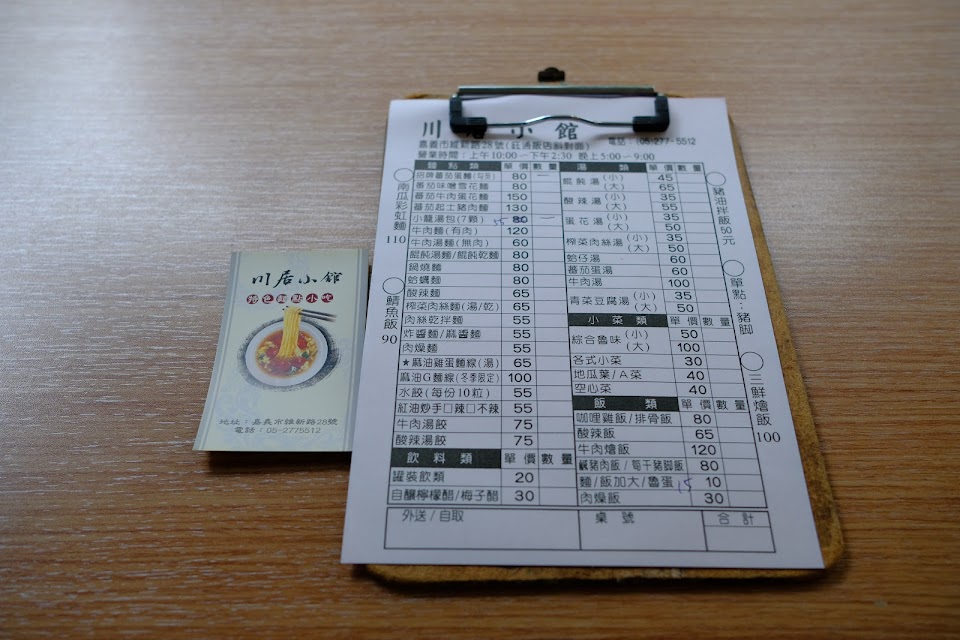 川居小館
特色麵點小吃
地址:嘉義市維新路28號
電話:05-2775512
川居小館
電話:(05)277-5512
嘉義市維新路28號(鈺通飯店斜對面)
營業時間:上午10:00-下午2:30 晚上5:00-9:00
麵點類 單價 數量
招牌番茄蛋麵 80 一
番茄味噌雪花麵 80
番茄牛肉蛋麵 150
番茄起士豬肉麵 130
小籠湯包(7顆) 80 一
牛肉麵(有肉) 120
牛肉湯麵(無肉) 60
餛飩湯麵/餛飩乾麵 80
鍋燒麵 80
蛤蠣麵 80
酸辣麵 65
榨菜肉絲麵(湯/乾) 65
肉絲乾拌麵 55
炸醬麵/麻醬麵 55
肉燥麵 55
★麻油雞蛋麵線(湯) 65
麻油G麵線(冬季限定) 100
水餃(每份10粒) 55
紅油炒手□辣□不辣 55
牛肉湯餃 75
酸辣湯餃 75
飲料類 單價 數量
罐裝飲類 20
自釀檸檬醋/梅子醋 30
湯類 單價 數量
餛飩湯(小) 45
(大) 65
酸辣湯(小) 35
(大) 55
蛋花湯(小) 35
(大) 50
榨菜肉絲湯(小) 35
(大) 50
蛤仔湯 60
番茄蛋湯 60
牛肉湯 100
青菜豆腐湯(小) 35
(大) 50
小菜類 單價 數量
綜合魯味(小) 50
(大) 100
各式小菜 30
地瓜葉/A菜 40
空心菜 40
飯類 單價 數量
咖哩雞飯/排骨飯 80
酸辣飯 65
牛肉燴飯 120
鹹豬肉飯/筍干豬腳飯 80
麵/飯加大/魯蛋 15 10
肉燥飯 30
外送/自取 桌號 合計
○南瓜彩虹麵 110
○鯖魚飯 90
○豬油拌飯 50元
○單點:豬腳
○三鮮燴飯 100